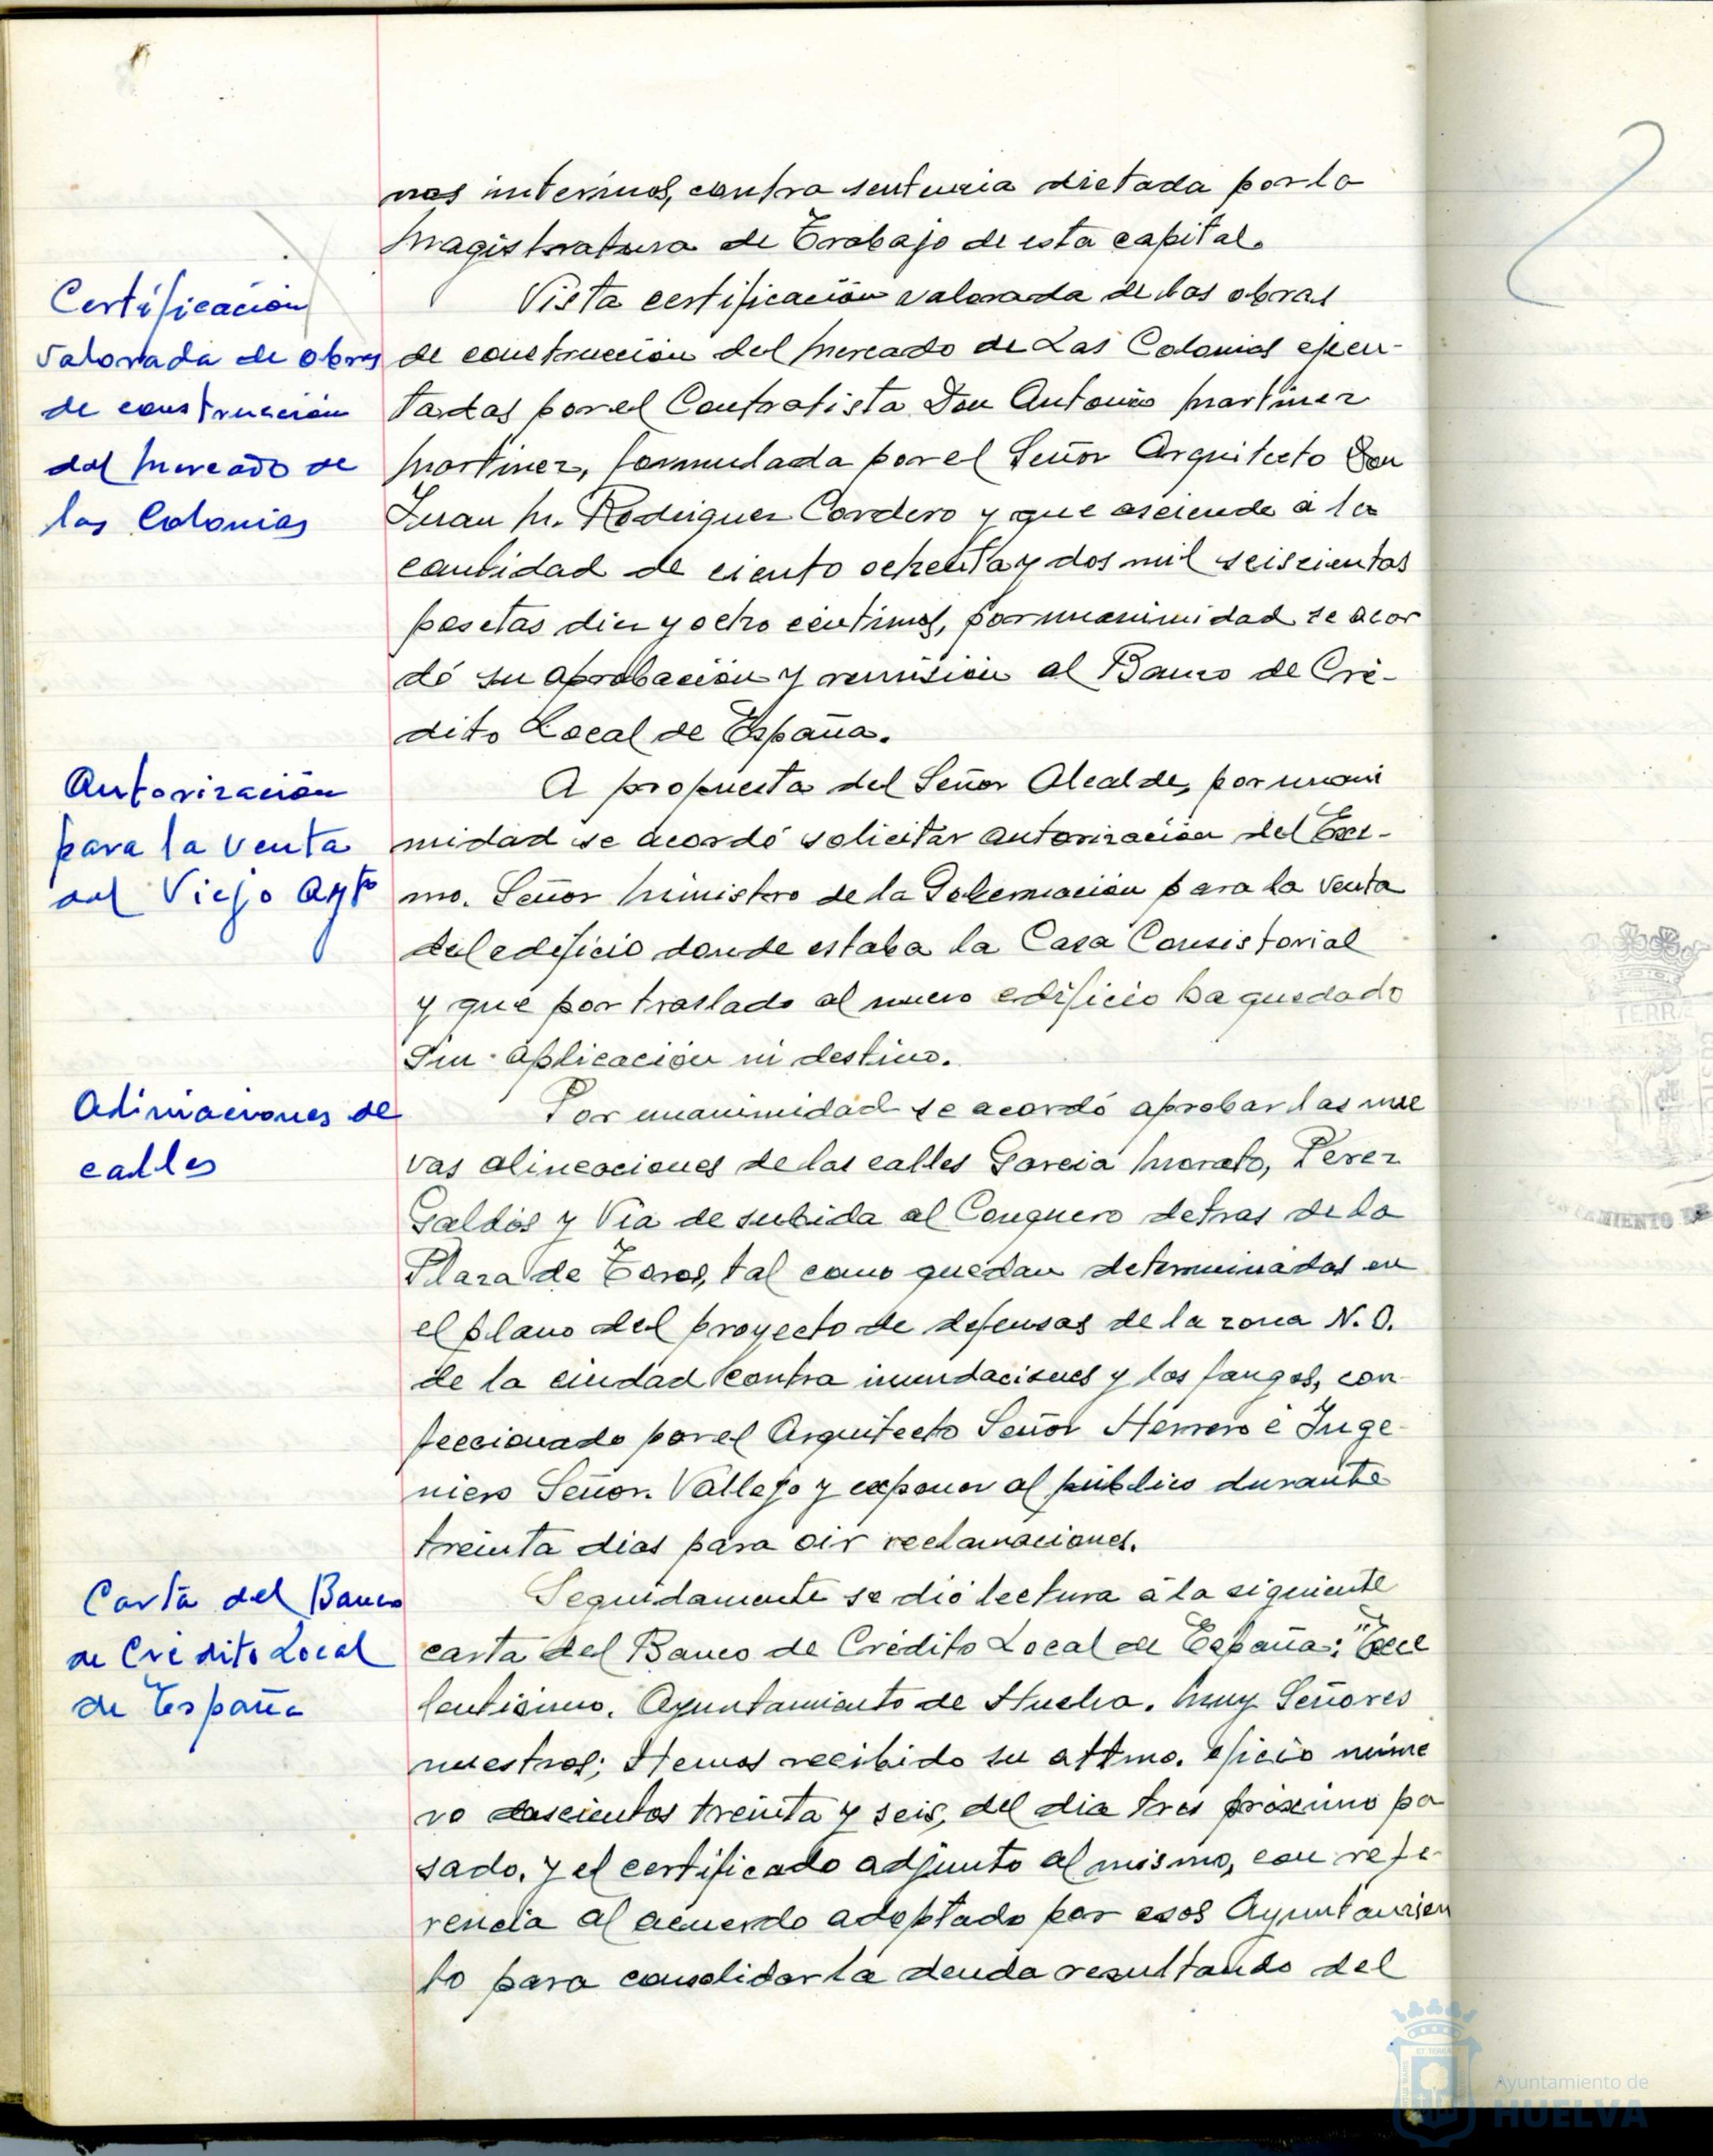 nos interinos, contra sentencia dictada por la
Magistratura de Trabajo de esta capital.
Certificación
valorada de obras
de construcción
del Mercado de
las Colonias
Vista certificación valorada de las obras
de construcción del Mercado de Las Colonias ejecu-
tadas por el Contratista Don Antonio Martinez
Martinez, formulada por el Señor Arquitecto Don
Juan M. Rodriguez Cordero y que asciende á la
cantidad de ciento ochenta y dos mil seiscientas
pesetas diez y ocho céntimos, por unanimidad se acor
dó su aprobación y remisión al Banco de Cré-
dito Local de España.
Autorización
para la venta
del Viejo Aytº
A propuesta del Señor Alcalde, por unani
midad se acordó solicitar autorización del Exc-
mo. Señor Ministro de la Gobernación para la venta
del edificio donde estaba la Casa Consistorial
y que por traslado al nuevo edificio ha quedado
sin aplicación ni destino.
Aliniaciones de
calles
Por unanimidad se acordó aprobar las nue
vas alineaciones de las calles Garcia Morato, Perez
Galdós y Via de subida al Conquero detras de la
Plaza de Toros, tal como quedan determinadas en
el plano del proyecto de defensas de la zona N.O.
de la ciudad contra inundaciones y los fangos, con
feccionado por el Arquitecto Señor Herrero é Inge-
niero Señor Vallejo y exponer al público durante
treinta dias para oir reclamaciones.
Carta del Banco
de Crédito Local
de España
Seguidamente se dió lectura á la siguiente
carta del Banco de Crédito Local de España: "Exce
lentisimo. Ayuntamiento de Huelva. Muy Señores
nuestros; Hemos recibido su attmo. oficio núme
ro doscientos treinta y seis, del dia tres próximo pa
sado, y el certificado adjunto al mismo, con refe-
rencia al acuerdo adoptado por esos Ayuntamien
to para consolidar la deuda resultando del
TERRA
AMIENTO DE
Ayuntamiento de
HUELVA